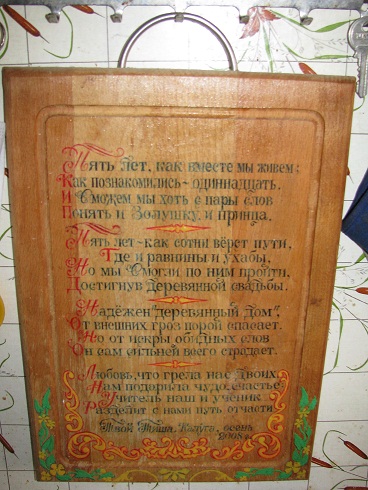 Пять лет, как вместе мы живем;
Как познакомились - одиннадцать.
И сможем мы хоть с пары слов
Понять и Золушку, и принца.
Пять лет - как сотни вёрст пути,
Где и равнины и ухабы,
Но мы смогли по ним пройти,
Достигнув деревянной свадьбы.
Надёжен "деревянный дом",
От внешних гроз порой спасает.
Но от искры обидных слов
Он сам сильней всего страдает.
Любовь, что грела нас двоих,
Нам подарила чудо, счастье
Учитель наш и ученик -
Разделит с нами путь отчасти
Твой Паша. Калуга, осень
2008г.